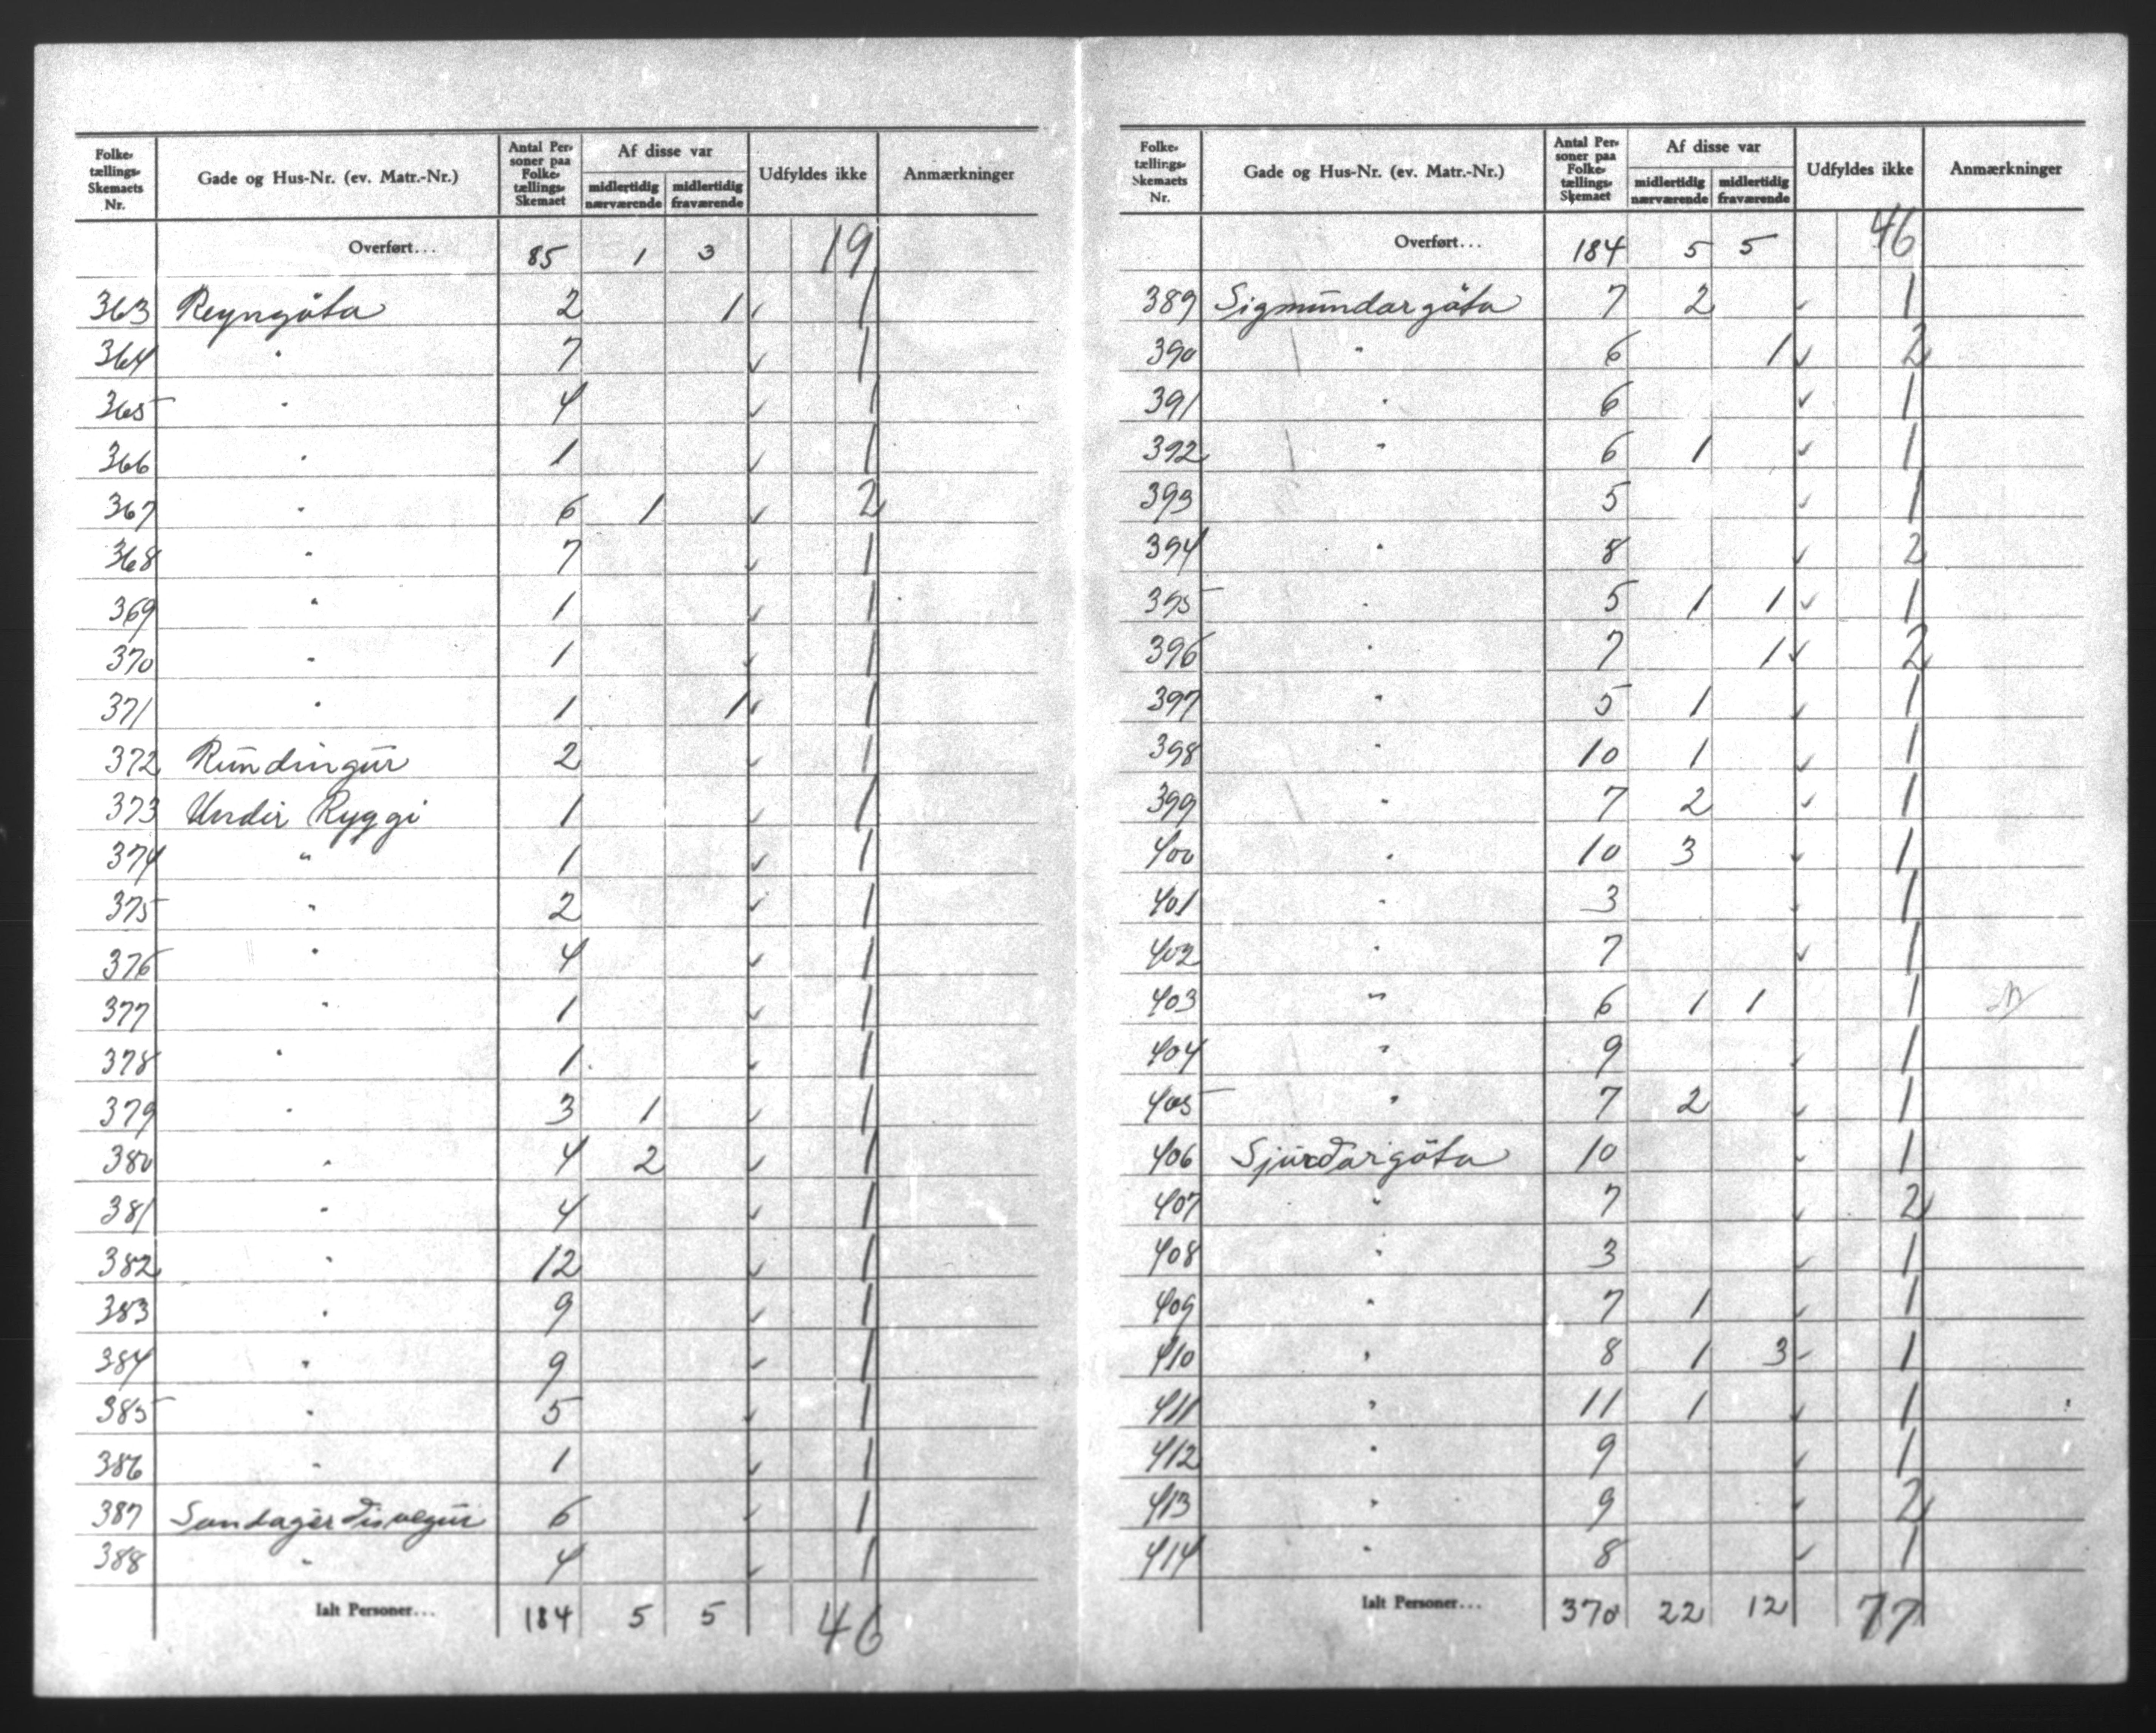 Folke-
tællings-
Skemaets
Nr.
Gade og Hus-Nr. (ev. Matr.-Nr.)
Antal Per-
soner paa
Folke-
tællings-
Skemaet
Af disse var
midlertidig
nærværende
midlertidig
fraværende
Udfyldes ikke
Anmærkninger
Overført... 85 1 3 19
363 Reyngöta 2 1 ✓ 1
364 " 7 ✓ 1
365 " 4 ✓ 1
366 " 1 ✓ 1
367 " 6 1 ✓ 2
368 " 7 ✓ 1
369 " 1 ✓ 1
370 " 1 ✓ 1
371 " 1 1 ✓ 1
372 Rundingur 2 ✓ 1
373 Undir Ryggi 1 ✓ 1
374 " 1 ✓ 1
375 " 2 ✓ 1
376 " 4 ✓ 1
377 " 1 ✓ 1
378 " 1 ✓ 1
379 " 3 1 ✓ 1
380 " 4 2 ✓ 1
381 " 4 ✓ 1
382 " 12 ✓ 1
383 " 9 ✓ 1
384 " 9 ✓ 1
385 " 5 ✓ 1
386 " 1 ✓ 1
387 Sandagerdisvegur 6 ✓ 1
388 " 4 ✓ 1
Ialt Personer... 184 5 5 46
Folke-
tællings-
Skemaets
Nr.
Gade og Hus-Nr. (ev. Matr.-Nr.)
Antal Per-
soner paa
Folke-
tællings-
Skemaet
Af disse var
midlertidig
nærværende
midlertidig
fraværende
Udfyldes ikke
Anmærkninger
Overført... 184 5 5 46
389 Sigmundargöta 7 2 ✓ 1
390 " 6 1 ✓ 2
391 " 6 ✓ 1
392 " 6 1 ✓ 1
393 5 ✓ 1
394 " 8 ✓ 2
395 " 5 1 1 ✓ 1
396 " 7 1 ✓ 2
397 " 5 1 ✓ 1
398 " 10 1 ✓ 1
399 " 7 2 ✓ 1
400 " 10 3 ✓ 1
401 " 3 ✓ 1
402 " 7 ✓ 1
403 " 6 1 1 1
404 " 9 ✓ 1
405 " 7 2 ✓ 1
406 Sjúrdargöta 10 ✓ 1
407 " 7 ✓ 2
408 " 3 ✓ 1
409 " 7 1 ✓ 1
410 " 8 1 3 ✓ 1
411 " 11 1 ✓ 1
412 " 9 ✓ 1
413 " 9 ✓ 2
414 " 8 ✓ 1
Ialt Personer... 370 22 12 77